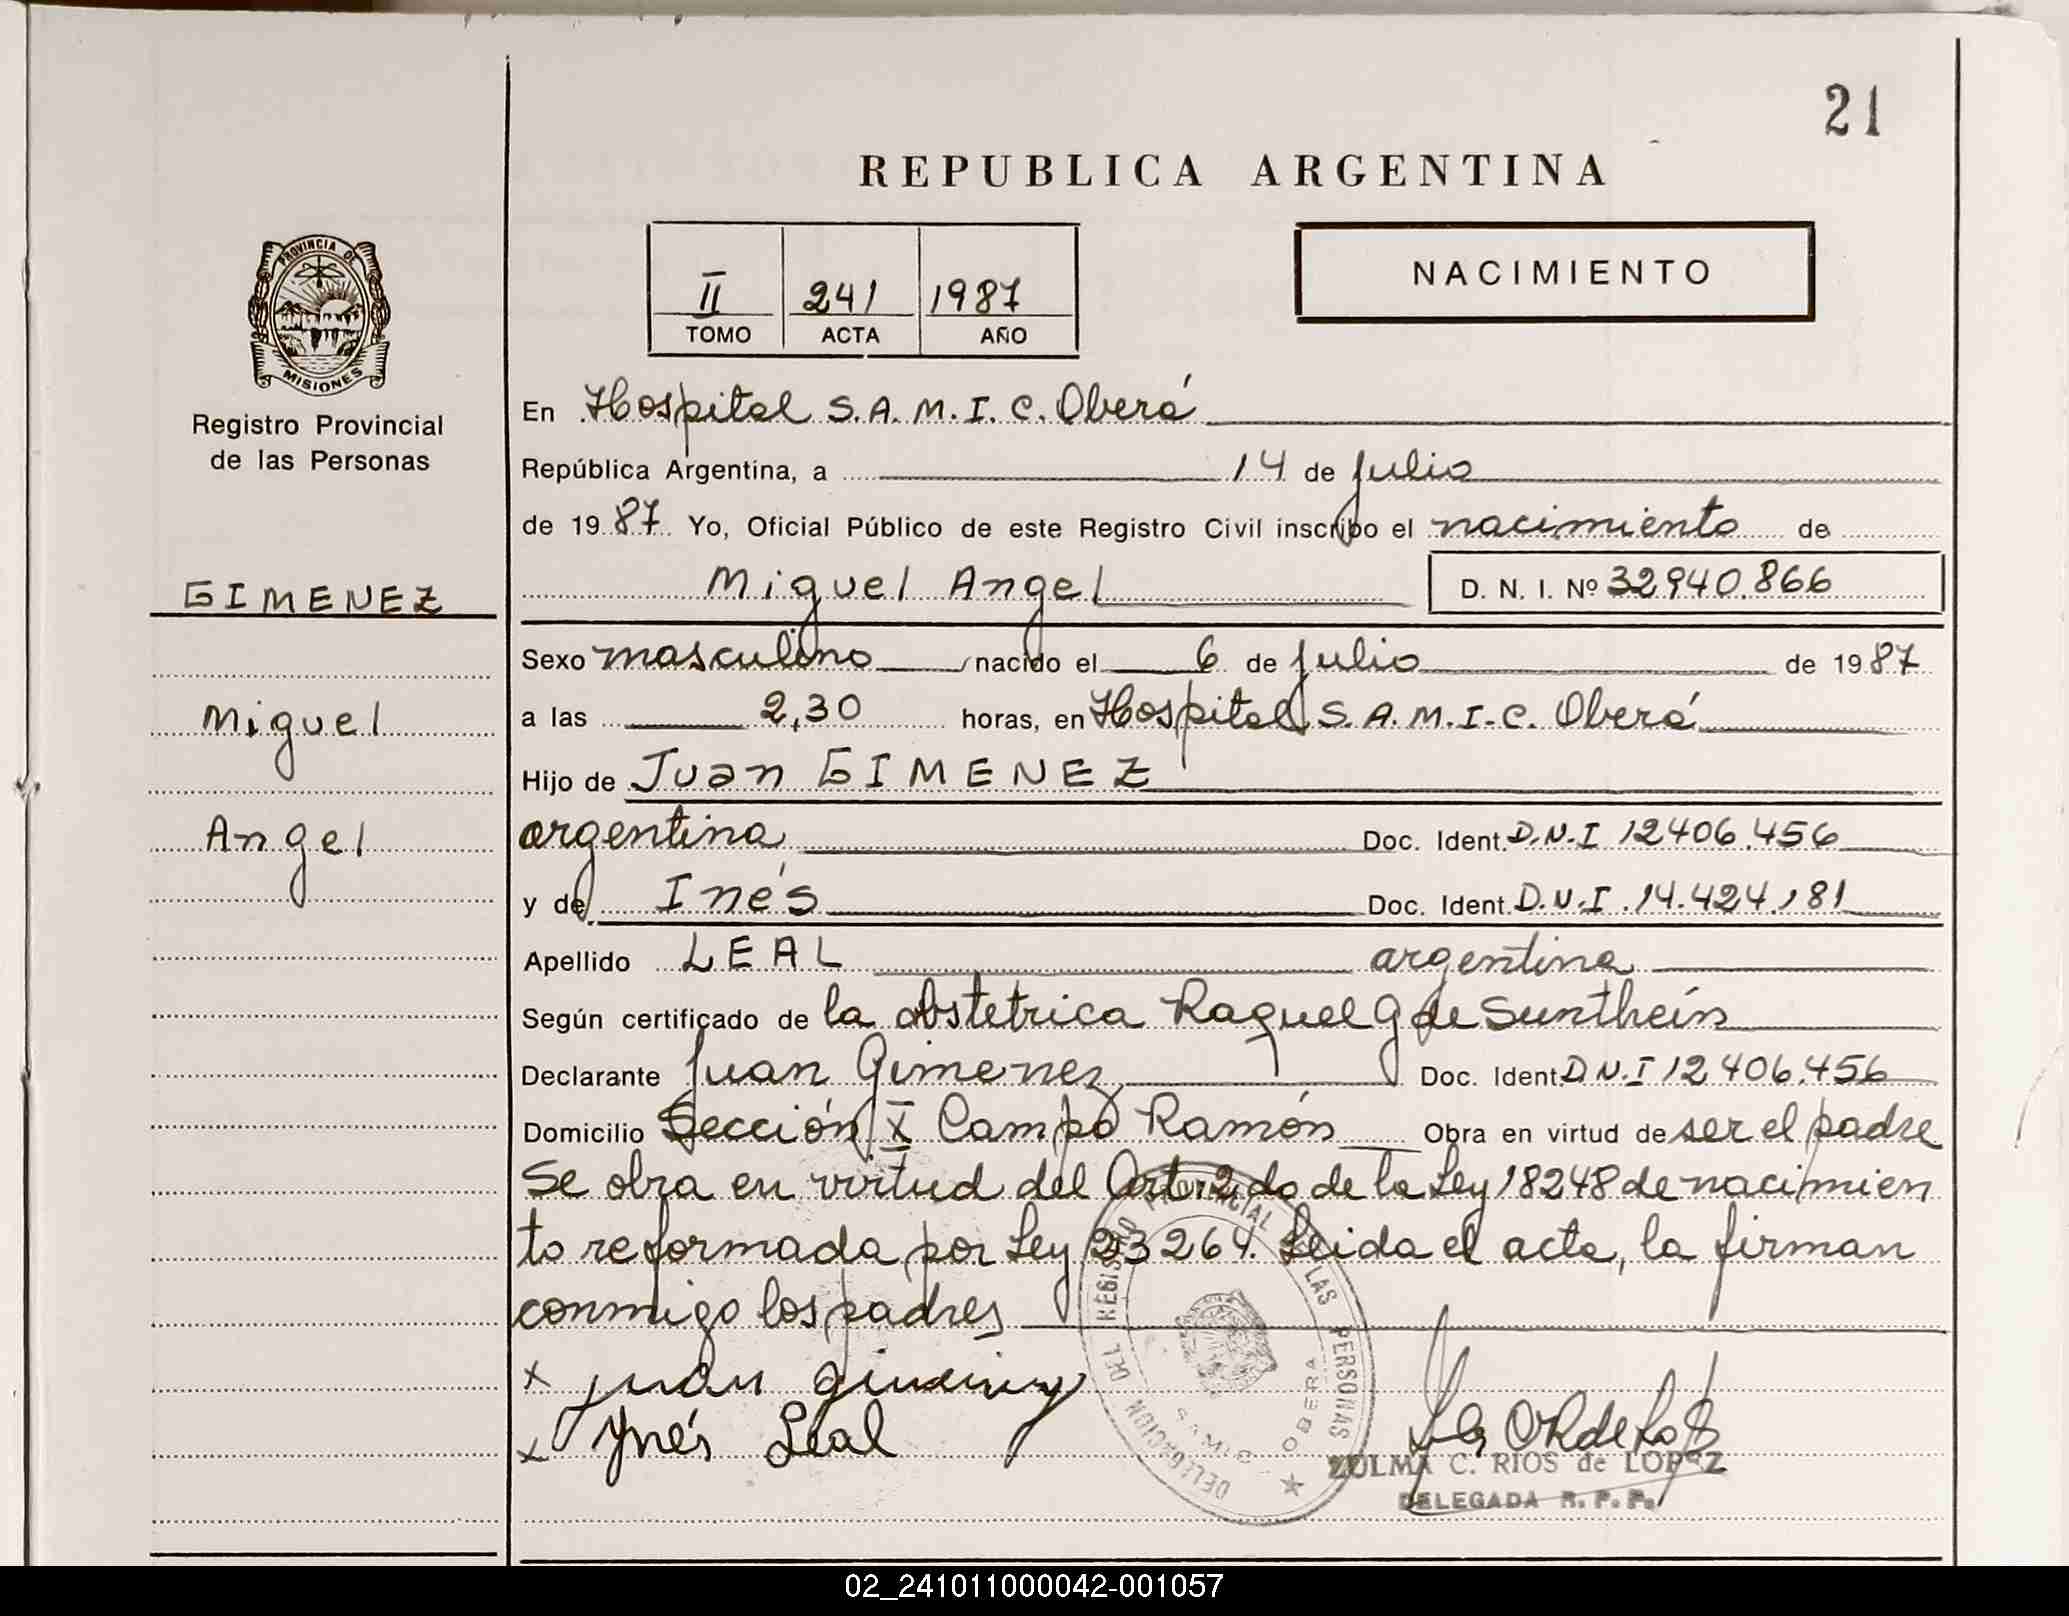 21
REPUBLICA ARGENTINA
NACIMIENTO
II 241 1987
TOMO ACTA AÑO
PROVINCIA DE
MISIONES
Registro Provincial
de las Personas
GIMENEZ
Miguel
Angel
En Hospital S.A.M.I.C. Oberá
República Argentina, a 14 de julio
de 1987 Yo, Oficial Público de este Registro Civil inscribo el nacimiento de
Miguel Angel D. N. I. Nº 32940.866
Sexo masculino nacido el 6 de julio de 1987
a las 2,30 horas, en Hospital S.A.M.I.C. Oberá
Hijo de Juan GIMENEZ
argentina Doc. Ident. D.N.I 12406.456
y de Inés Doc. Ident. D.N.I. 14.424.181
Apellido LEAL argentina
Según certificado de la obstetrica Raquel G de Sunthein
Declarante Juan Gimenez Doc. Ident. D.N.I 12406.456
Domicilio Sección X Campo Ramón Obra en virtud de ser el padre
Se obra en virtud del Art. 2do de la Ley 18248 de nacimien
to reformada por Ley 23264. Leida el acta, la firman
conmigo los padres
x juan gimenez
x Ynés Leal
DELEGACION DEL REGISTRO PROVINCIAL DE LAS PERSONAS
OBERA
ZULMA C. RIOS de LOPEZ
DELEGADA R. P. P.
02_241011000042-001057